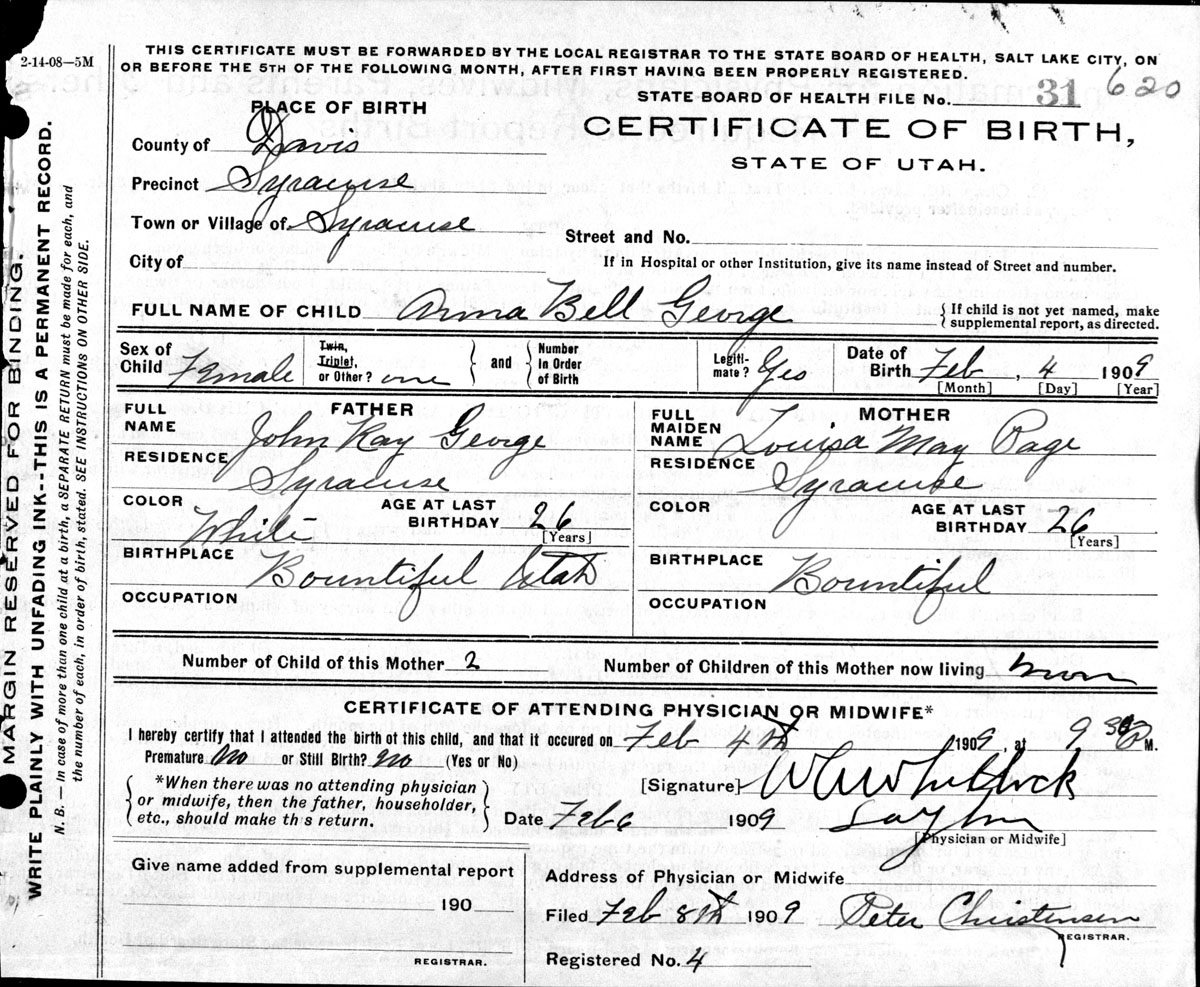 2-14-08—5M
THIS CERTIFICATE MUST BE FORWARDED BY THE LOCAL REGISTRAR TO THE STATE BOARD OF HEALTH, SALT LAKE CITY, ON
OR BEFORE THE 5TH OF THE FOLLOWING MONTH, AFTER FIRST HAVING BEEN PROPERLY REGISTERED.
STATE BOARD OF HEALTH FILE No. 31 620
CERTIFICATE OF BIRTH,
STATE OF UTAH.
PLACE OF BIRTH
County of Davis
Precinct Syracuse
Town or Village of Syracuse
Street and No.
City of
If in Hospital or other Institution, give its name instead of Street and number.
FULL NAME OF CHILD Anna Bell George
{If child is not yet named, make
supplemental report, as directed.
Sex of Child Female
Twin, Triplet, or Other? one } and { Number in Order of Birth
Legiti-mate? Yes
Date of Birth Feb, 4 1909
[Month] [Day] [Year]
FATHER
FULL NAME John Kay George
RESIDENCE Syracuse
COLOR White
AGE AT LAST BIRTHDAY 26
[Years]
BIRTHPLACE Bountiful Utah
OCCUPATION
MOTHER
FULL MAIDEN NAME Louisa May Page
RESIDENCE Syracuse
COLOR
AGE AT LAST BIRTHDAY 26
[Years]
BIRTHPLACE Bountiful
OCCUPATION
Number of Child of this Mother 2
Number of Children of this Mother now living
CERTIFICATE OF ATTENDING PHYSICIAN OR MIDWIFE*
I hereby certify that I attended the birth of this child, and that it occured on Feb 4th 1909, at 9 30 M.
Premature no or Still Birth? no (Yes or No)
{*When there was no attending physician
or midwife, then the father, householder,
etc., should make this return.}
[Signature] Whitlock
Date Feb 6 1909 Layton
[Physician or Midwife]
Give name added from supplemental report
190
REGISTRAR.
Address of Physician or Midwife
Filed Feb 8th 1909 Peter Christensen
REGISTRAR.
Registered No. 4
MARGIN RESERVED FOR BINDING.
WRITE PLAINLY WITH UNFADING INK--THIS IS A PERMANENT RECORD.
N. B. — In case of more than one child at a birth, a SEPARATE RETURN must be made for each, and
the number of each, in order of birth, stated. SEE INSTRUCTIONS ON OTHER SIDE.